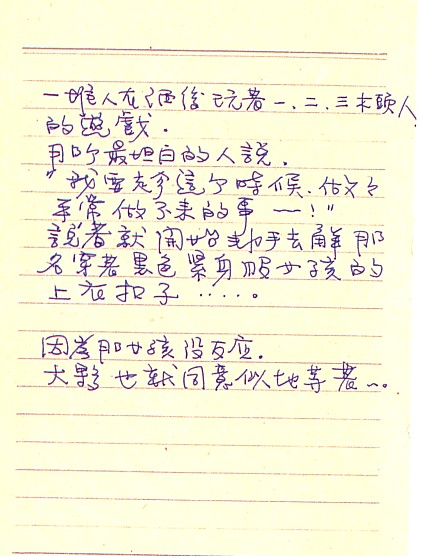 一堆人在酒後玩著一、二、三木頭人
的遊戲.
用吟最坦白的人說.
"我要在這個時候.做
平常做不來的事 一!"
說者就開始扣手去解那
名穿著黑色緊身服女孩的
上衣扣子.....。
因為那女孩沒反应.
大夥也就同意似地等著~。